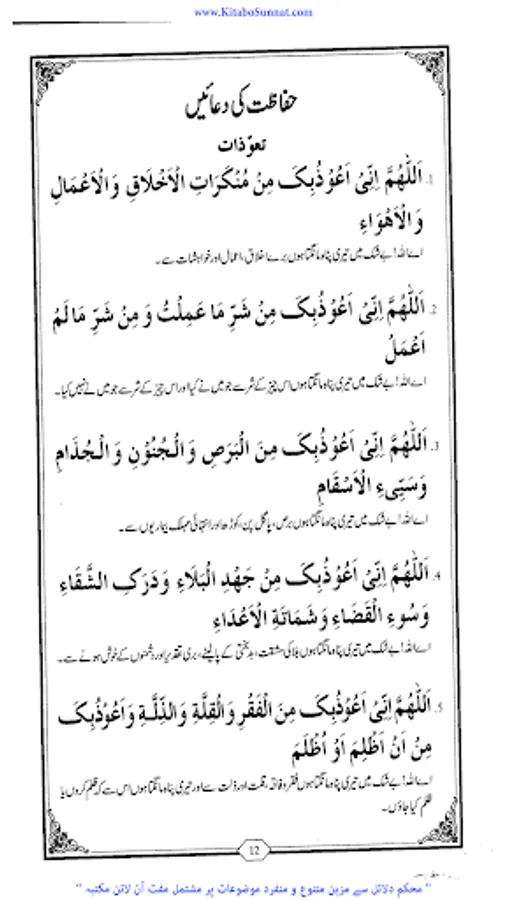 www.KitaboSunnat.com
حفاظت کی دعائیں
تعوّذات
1. اَللّٰهُمَّ اِنِّیْ اَعُوْذُبِکَ مِنْ مُنْکَرَاتِ الْاَخْلَاقِ وَالْاَعْمَالِ
وَالْاَهْوَاءِ
اے اللہ! بے شک میں تیری پناہ مانگتا ہوں برے اخلاق، اعمال اور خواہشات سے۔
2. اَللّٰهُمَّ اِنِّیْ اَعُوْذُبِکَ مِنْ شَرِّ مَا عَمِلْتُ وَمِنْ شَرِّ مَا لَمْ
اَعْمَلْ
اے اللہ! بے شک میں تیری پناہ مانگتا ہوں اس چیز کے شر سے جو میں نے کیا اور اس چیز کے شر سے جو میں نے نہیں کیا۔
3. اَللّٰهُمَّ اِنِّیْ اَعُوْذُبِکَ مِنَ الْبَرَصِ وَالْجُنُوْنِ وَالْجُذَامِ
وَسَیِّیءِ الْاَسْقَامِ
اے اللہ! بے شک میں تیری پناہ مانگتا ہوں برص، پاگل پن، کوڑھ اور انتہائی مہلک بیماریوں سے۔
4. اَللّٰهُمَّ اِنِّیْ اَعُوْذُبِکَ مِنْ جَهْدِ الْبَلَاءِ وَدَرَکِ الشَّقَاءِ
وَسُوءِ الْقَضَاءِ وَشَمَاتَةِ الْاَعْدَاءِ
اے اللہ! بے شک میں تیری پناہ مانگتا ہوں بلا کی مشقت، بدبختی کے پالینے، بری تقدیر اور دشمنوں کے خوش ہونے سے۔
5. اَللّٰهُمَّ اِنِّیْ اَعُوْذُبِکَ مِنَ الْفَقْرِ وَالْقِلَّةِ وَالذِّلَّةِ وَاَعُوْذُبِکَ
مِنْ اَنْ اَظْلِمَ اَوْ اُظْلَمَ
اے اللہ! بے شک میں تیری پناہ مانگتا ہوں فقر و فاقہ، قلت اور ذلت سے اور تیری پناہ مانگتا ہوں اس سے کہ ظلم کروں یا
ظلم کیا جاؤں۔
12
" محکم دلائل سے مزین متنوع و منفرد موضوعات پر مشتمل مفت آن لائن مکتبہ "